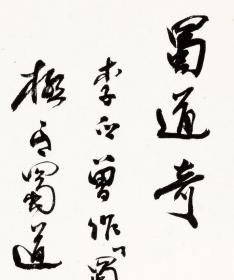 蜀道奇
李白曾作「蜀
极言蜀道